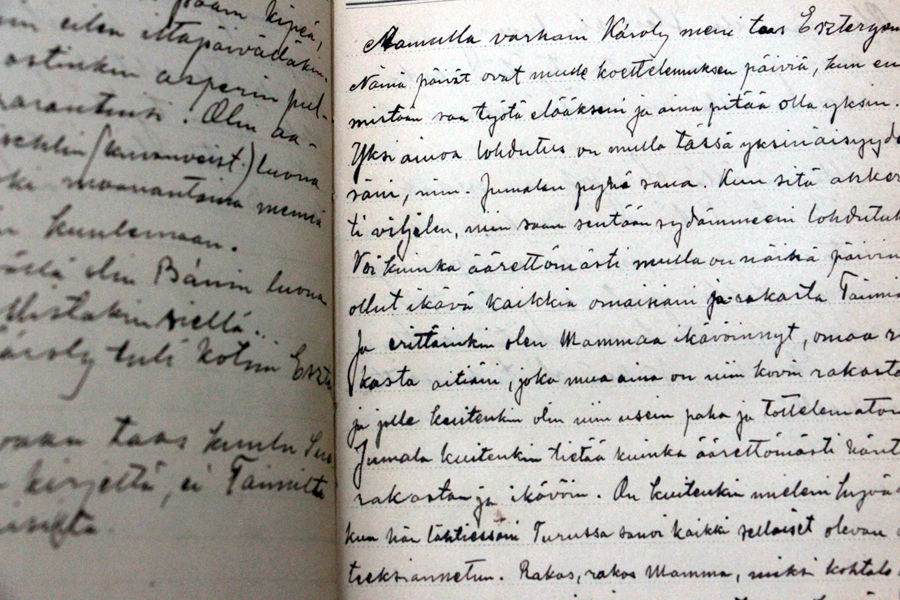 kipeä,
eilen iltapäivällä kun
ostinkin aspirin pul-
Olin aa-
luona
maanantaina mennä
kuulemaan.
olin Bánin luona
siellä.
Károly tuli kotiin Eszter
taas kuulu Suo
kirjettä, ei Taimilta
Aamulla varhain Károly meni taas Esztergom
Nämä päivät ovat mulle koettelemuksen päiviä, kun en
mistään saa työtä elääkseni ja aina pitää olla yksin.
Yksi ainoa lohdutus on mulla tässä yksinäisyyde
säni, nim. Jumalan pyhä sana. Kun sitä ahker
ti viljelen, niin saan sentään sydämmeeni lohdutuk
Voi kuinka äärettömästi mulla on näinä päivin
ollut ikävä kaikkia omaisiani ja rakasta Taimi
Ja erittäinkin olen Mammaa ikävöinnyt, omaa ra
kasta äitiäni, joka mua aina on niin kovin rakasta
ja jolle kuitenkin olin niin usein paha ja tottelematon
Jumala kuitenkin tietää kuinka äärettömästi häntä
rakastan ja ikävöin. On kuitenkin mieleni hyvä
kun hän lähtiessäni Turussa sanoi kaikki sellaiset olevan a
teeksiannetun. Rakas, rakas Mamma, miksi kohtalo